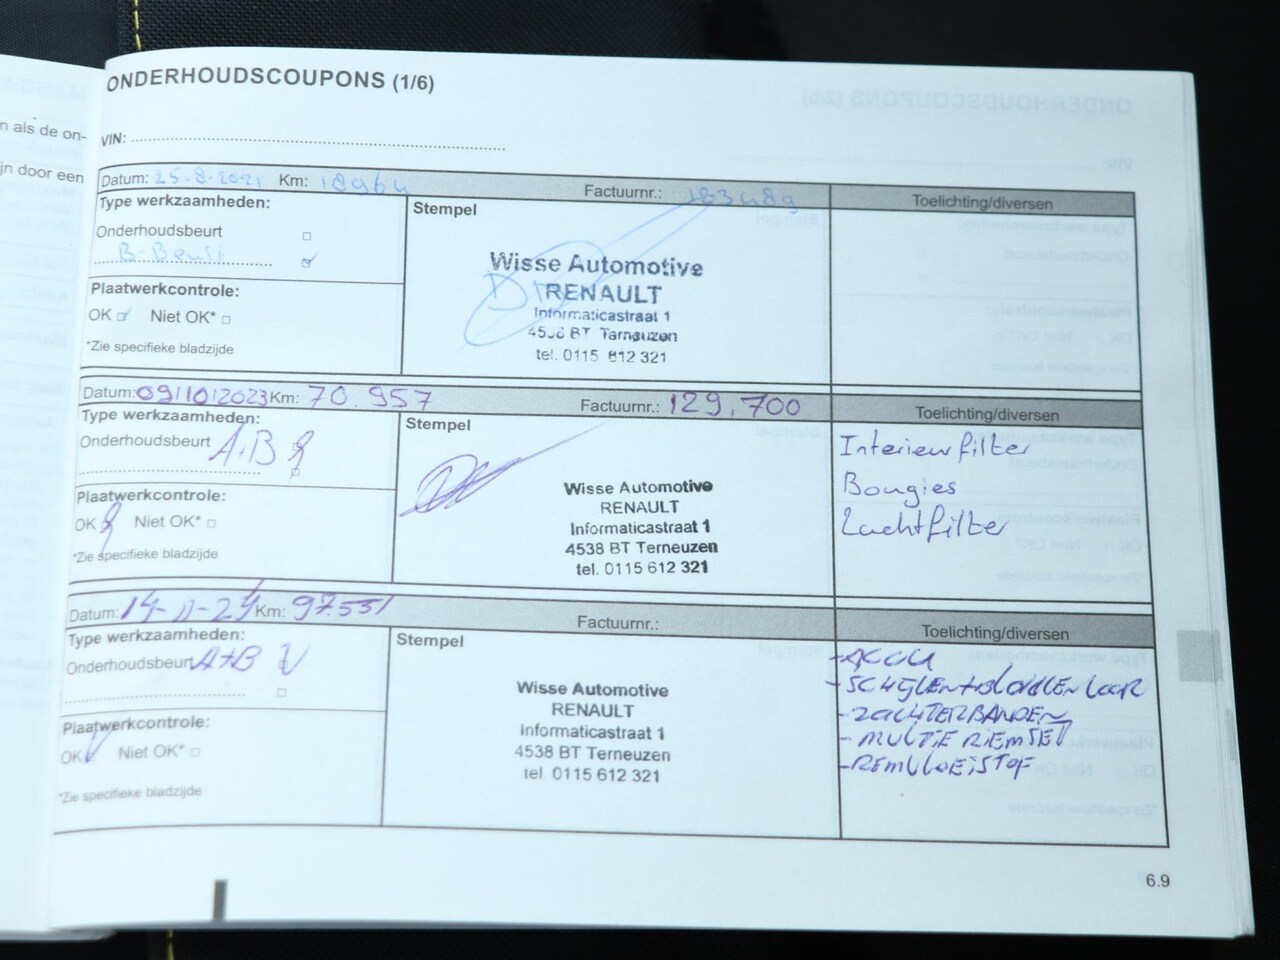 n als de on-
jn door een
ONDERHOUDSCOUPONS (1/6)
VIN:
Datum: 25-8-2021 Km: 18964 Factuurnr.: 183489 Toelichting/diversen
Type werkzaamheden:
Stempel
Onderhoudsbeurt
B-Beurt
Wisse Automotive
RENAULT
Informaticastraat 1
4538 BT Terneuzen
tel. 0115 612 321
Plaatwerkcontrole:
OK Niet OK*
*Zie specifieke bladzijde
Datum: 09/10/2023 Km: 70.957 Factuurnr.: 129.700 Toelichting/diversen
Type werkzaamheden:
Stempel
Onderhoudsbeurt A+B
Wisse Automotive
RENAULT
Informaticastraat 1
4538 BT Terneuzen
tel. 0115 612 321
Interieurfilter
Bougies
Luchtfilter
Plaatwerkcontrole:
OK Niet OK*
*Zie specifieke bladzijde
Datum: 14-11-24 Km: 97.551 Factuurnr.: Toelichting/diversen
Type werkzaamheden:
Stempel
Onderhoudsbeurt A+B
Wisse Automotive
RENAULT
Informaticastraat 1
4538 BT Terneuzen
tel 0115 612 321
-ACCU
-SCHIJLEN+BLOKKEN
-2 ACHTERBANDEN
-MULTIE RIEMSET
-REMVLOEISTOF
Plaatwerkcontrole:
OK Niet OK*
*Zie specifieke bladzijde
6.9